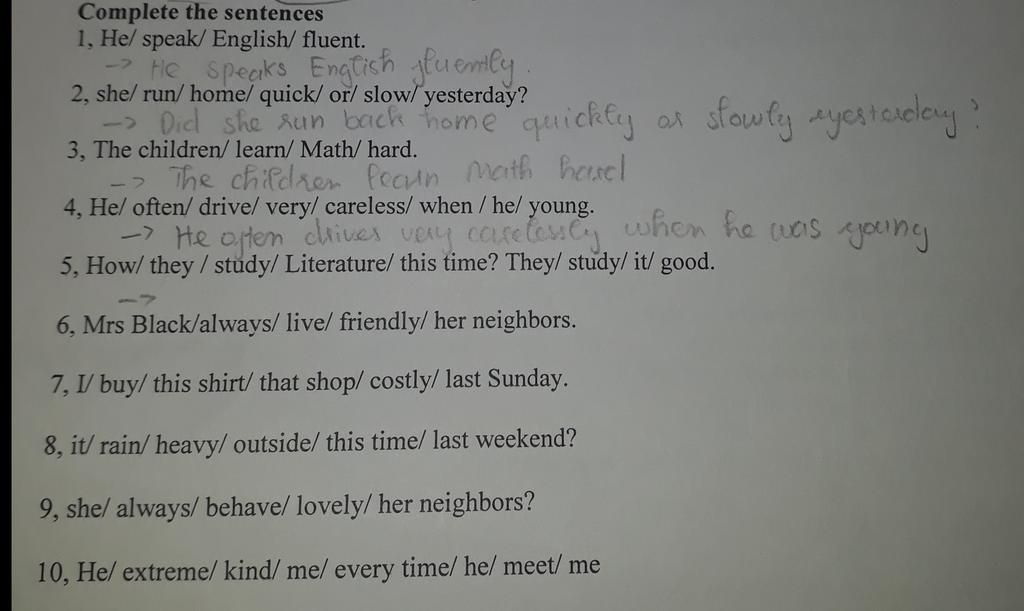 Complete the sentences
1, He/ speak/ English/ fluent.
-> He speaks English fluently.
2, she/ run/ home/ quick/ or/ slow/ yesterday?
-> Did she run back home quickly or slowly yesterday?
3, The children/ learn/ Math/ hard.
-> The children learn Math hard
4, He/ often/ drive/ very/ careless/ when / he/ young.
-> He often drives very carelessly when he was young
5, How/ they / study/ Literature/ this time? They/ study/ it/ good.
->
6, Mrs Black/always/ live/ friendly/ her neighbors.
7, I/ buy/ this shirt/ that shop/ costly/ last Sunday.
8, it/ rain/ heavy/ outside/ this time/ last weekend?
9, she/ always/ behave/ lovely/ her neighbors?
10, He/ extreme/ kind/ me/ every time/ he/ meet/ me